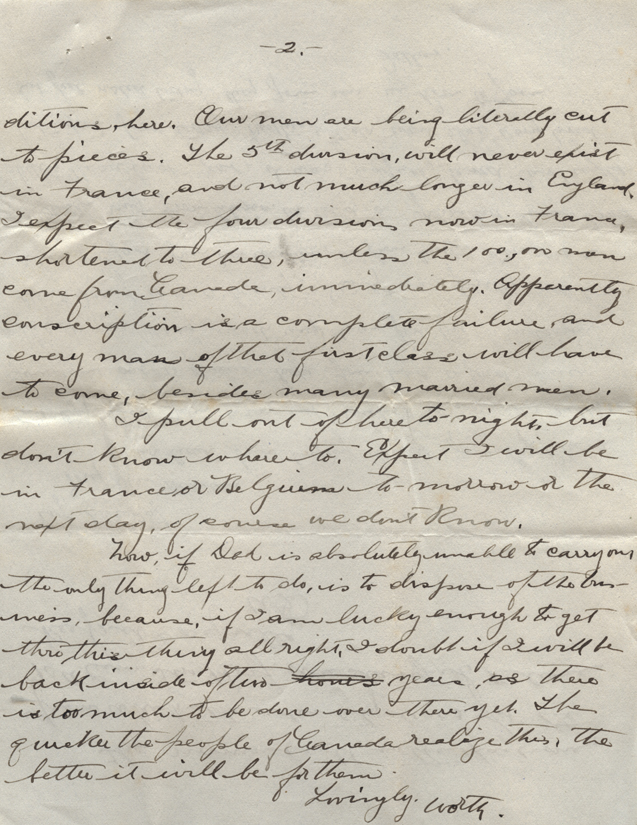 -2.-
ditions, here. Our men are being literally cut
to pieces. The 5th division, will never exist
in France, and not much longer in England.
I expect the four divisions now in France,
shortened to three, unless the 100,000 men
come from Canada, immediately. Apparently
conscription is a complete failure, and
every man of that first class will have
to come, besides many married men.
I pull out of here to-night, but
don't know where to. Expect I will be
in France or Belgium to-morrow or the
next day, of course we don't know.
Now, if Dad is absolutely unable to carry on,
the only thing left to do, is to dispose of the bus-
iness, because, if I am lucky enough to get
thro this thing all right, I doubt if I will be
back inside of two hours years, as there
is too much to be done over there yet. The
quicker the people of Canada realize this, the
better it will be for them.
Lovingly. Worth.